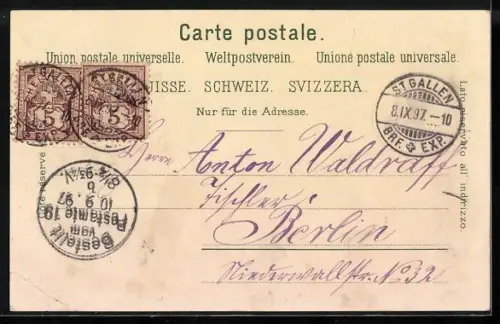 Carte postale.
Union postale universelle. Weltpostverein. Unione postale universale.
SUISSE. SCHWEIZ. SVIZZERA.
Nur für die Adresse.
Lato riservato all' indirizzo.
ST. GALLEN
5
5
EXP.
ST. GALLEN
8.IX.97. — 10
BRF. EXP.
Herrn Anton Waldraff
Tischler
Berlin
Niederwallstr. No 32
Bestellt
vom
Postamte 19
10.9.97